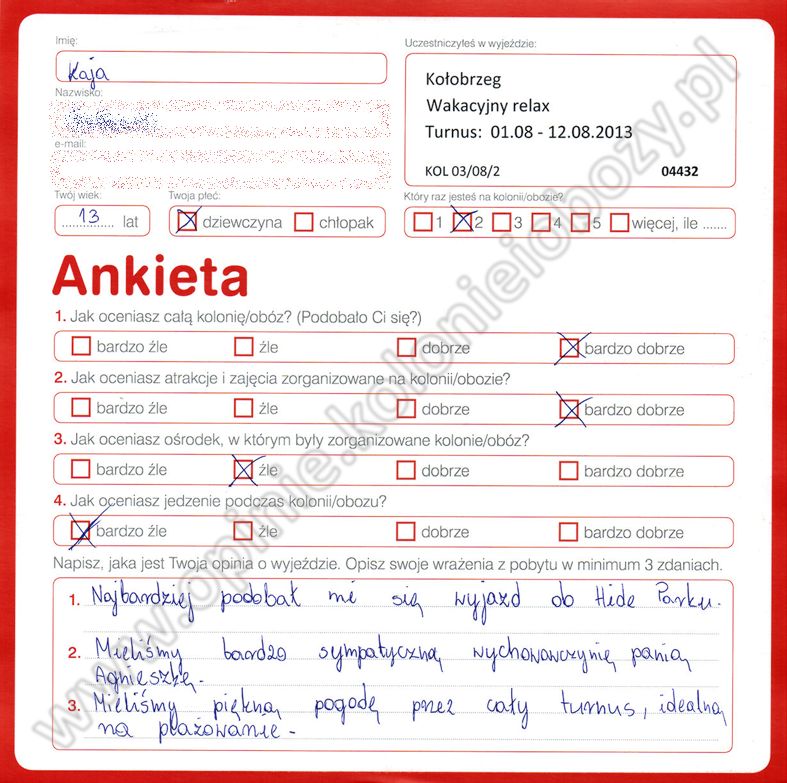 Imię:
Kaja
Nazwisko:
e-mail:
Uczestniczyłeś w wyjeździe:
Kołobrzeg
Wakacyjny relax
Turnus: 01.08 - 12.08.2013
KOL 03/08/2 04432
Twój wiek:
13 lat
Twoja płeć:
dziewczyna chłopak
Który raz jesteś na kolonii/obozie?
1 2 3 4 5 więcej, ile .......
Ankieta
1. Jak oceniasz całą kolonię/obóz? (Podobało Ci się?)
bardzo źle źle dobrze bardzo dobrze
2. Jak oceniasz atrakcje i zajęcia zorganizowane na kolonii/obozie?
bardzo źle źle dobrze bardzo dobrze
3. Jak oceniasz ośrodek, w którym były zorganizowane kolonie/obóz?
bardzo źle źle dobrze bardzo dobrze
4. Jak oceniasz jedzenie podczas kolonii/obozu?
bardzo źle źle dobrze bardzo dobrze
Napisz, jaka jest Twoja opinia o wyjeździe. Opisz swoje wrażenia z pobytu w minimum 3 zdaniach.
1. Najbardziej podobał mi się wyjazd do Hide Parku.
2. Mieliśmy bardzo sympatyczną wychowawczynię panią
Agnieszkę.
3. Mieliśmy piękną pogodę przez cały turnus, idealną
na plażowanie.
www.opinie.kolonieiobozy.pl